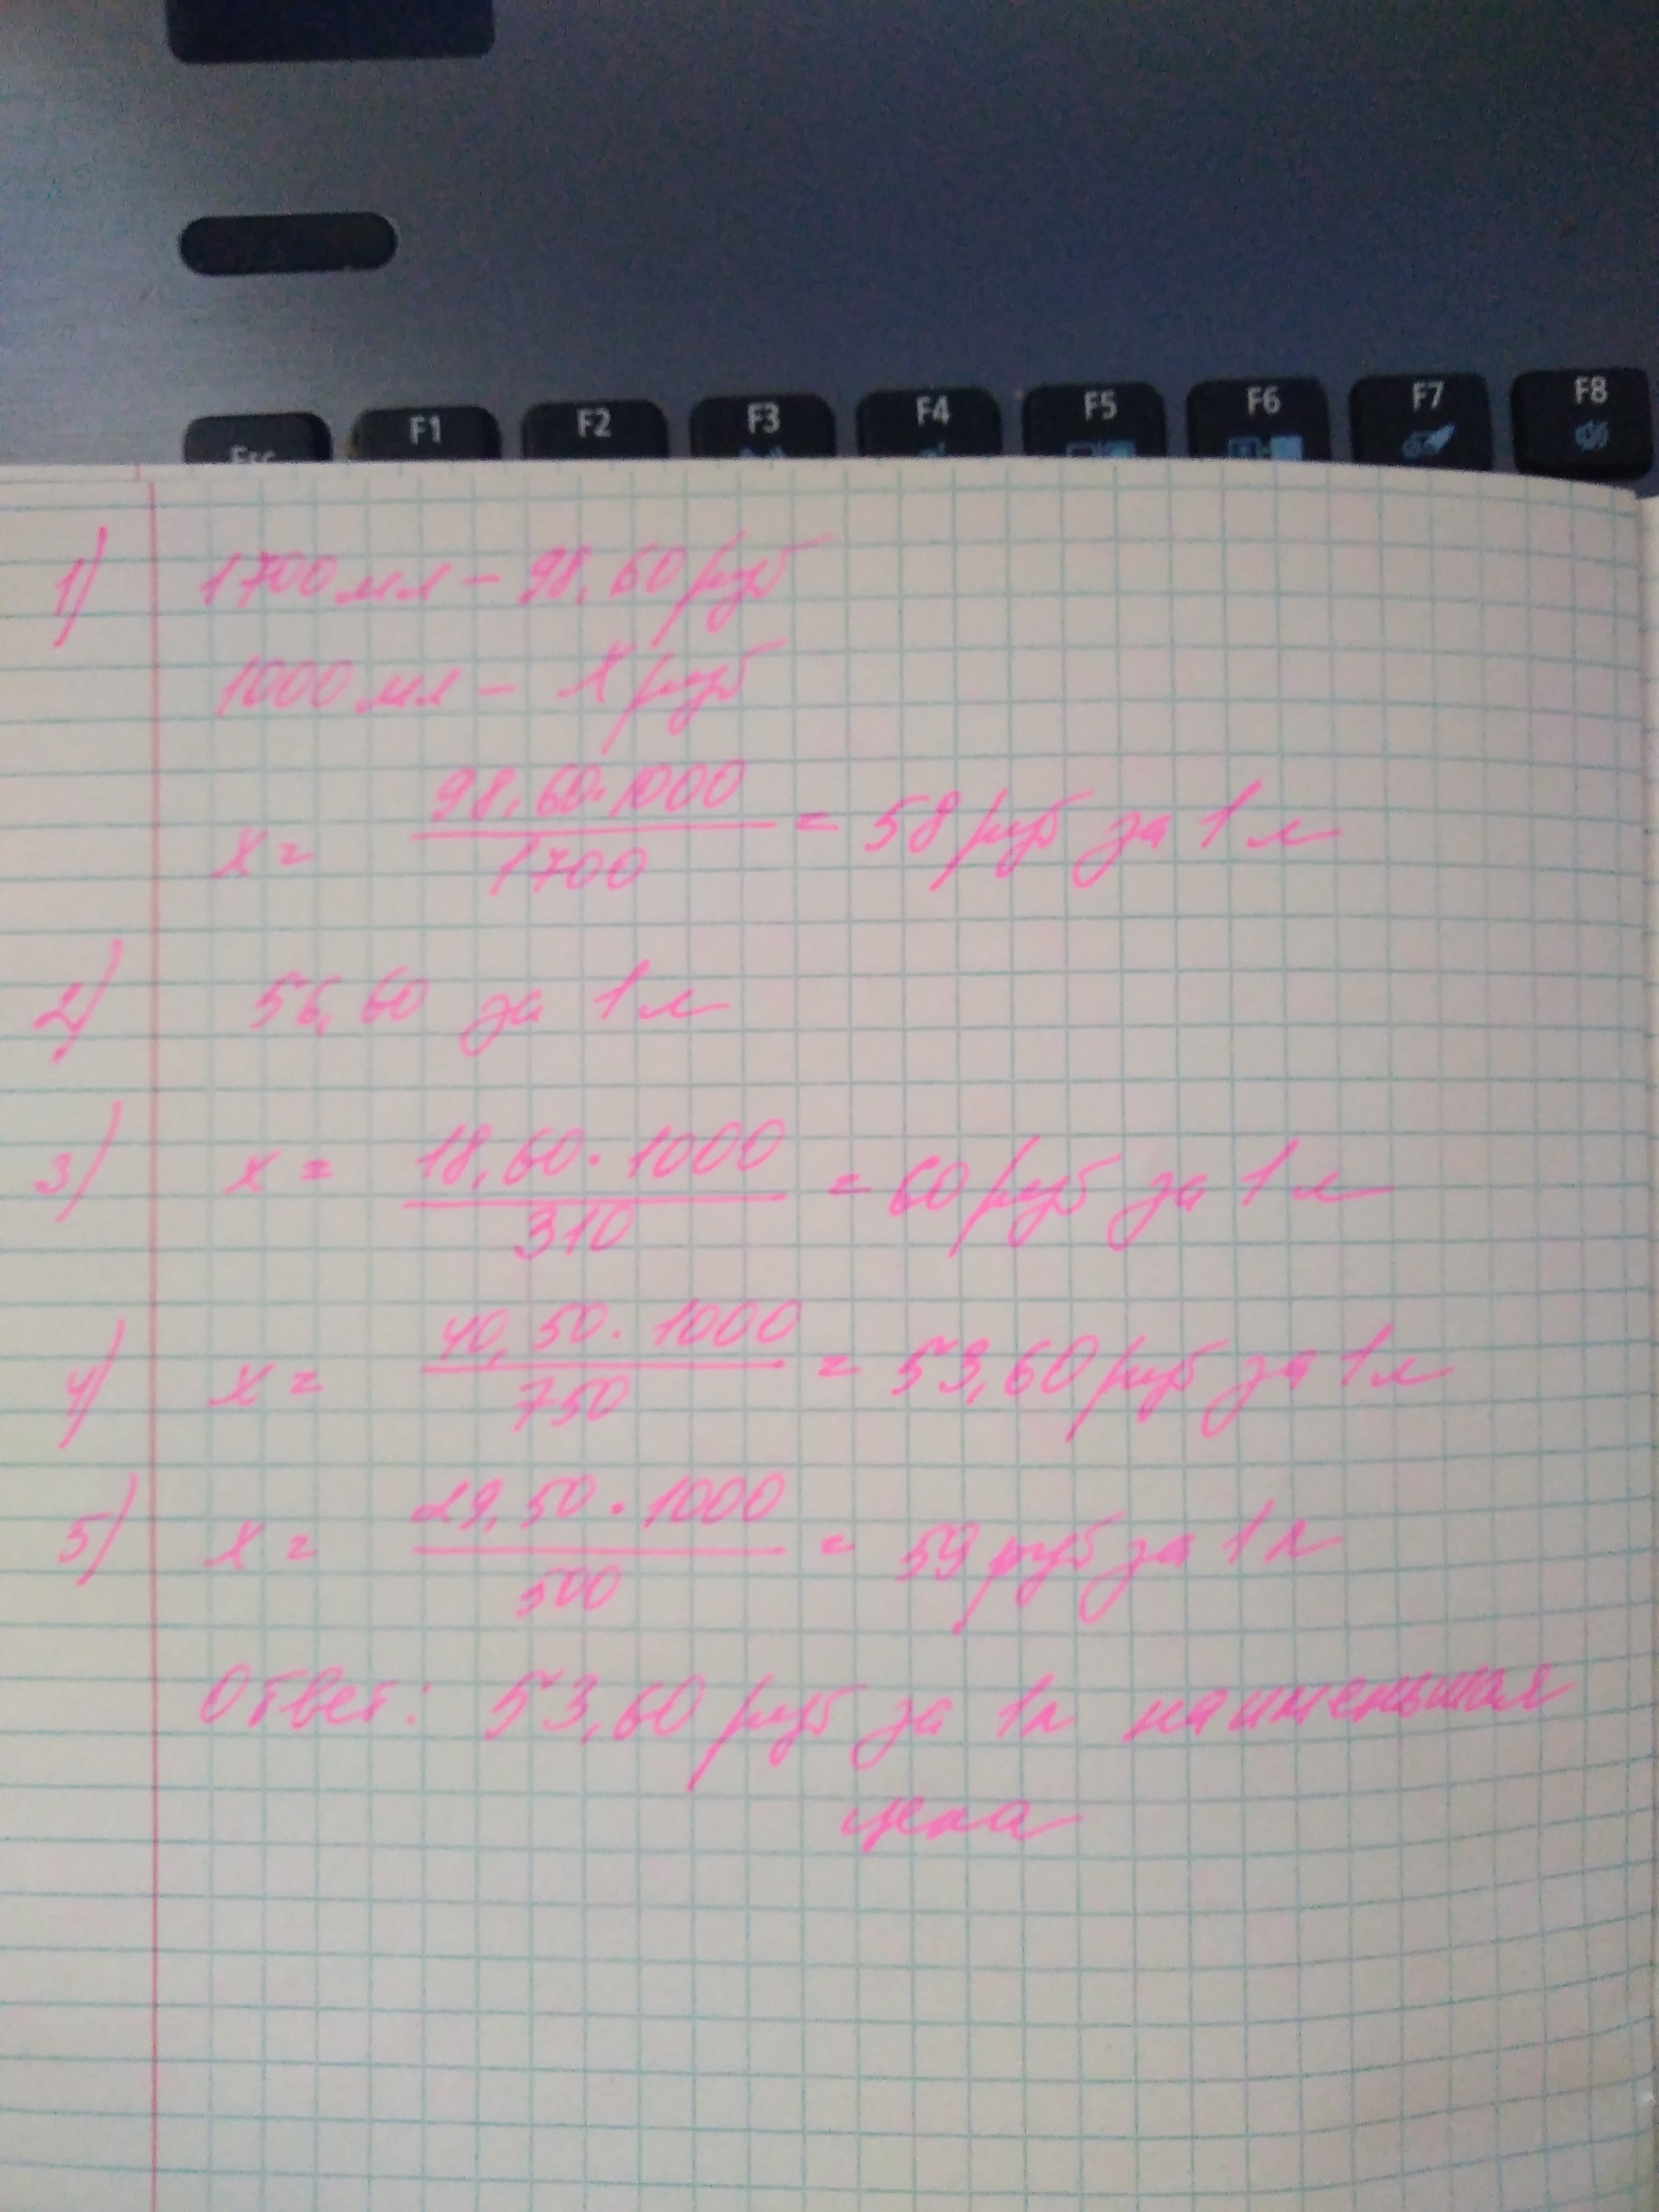 Esc F1 F2 F3 F4 F5 F6 F7 F8
1) 1700 мл – 98,60 руб
1000 мл – х руб
х = 98,60·1000 / 1700 = 58 руб за 1 л
2) 56,60 за 1 л
3) х = 18,60·1000 / 310 = 60 руб за 1 л
4) х = 40,50·1000 / 750 = 53,60 руб за 1 л
5) х = 29,50·1000 / 500 = 59 руб за 1 л
Ответ: 53,60 руб за 1 л наименьшая
цена